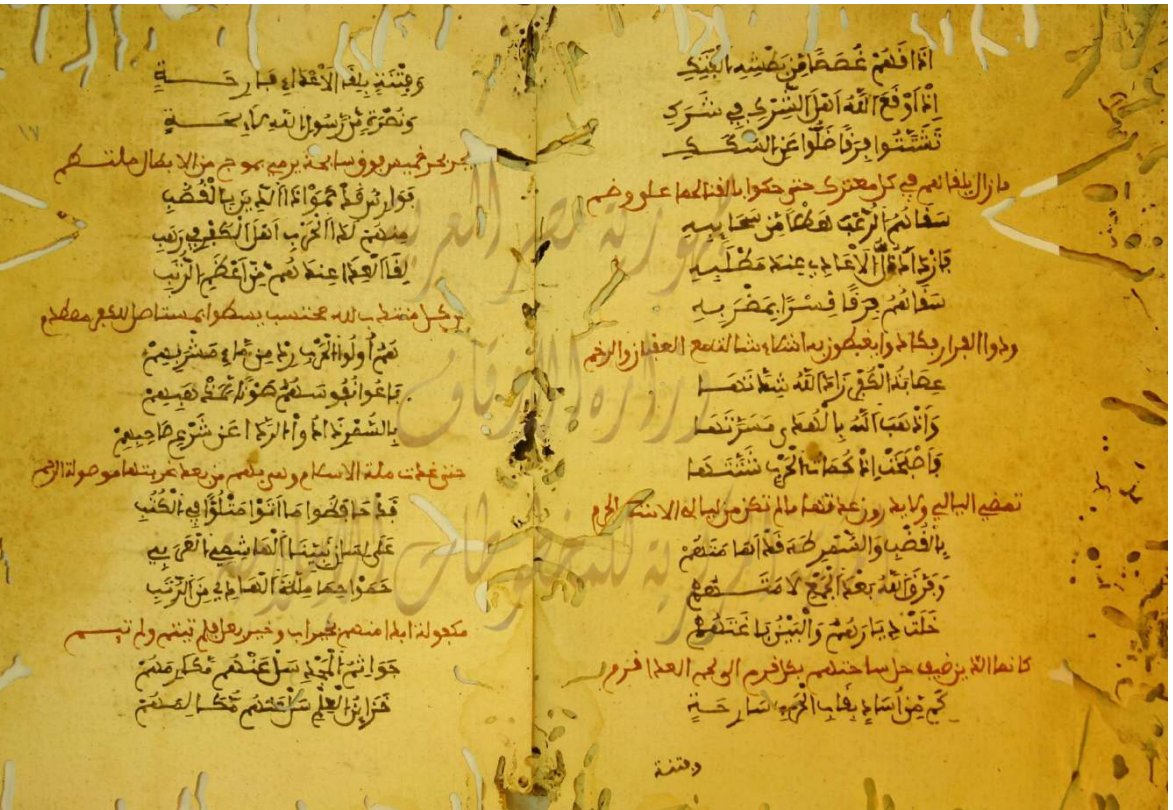 اذاقهم غصصا من بطشه الفتك
إذ أوقع الله أهل الشرك في شرك
تشتتوا فرقا ضلوا عن السكك
مازال يلقاهم في كل معترك حتى حكوا بالقنا لحما على وضم
سقاهم الرعب هطلا من سحائبه
الأعادي عند مطلبه
سقاهم فرقا قسرا بمضربه
ودوا الفرار فكادوا يغبطون به اشلاء شالت مع العقبان والرخم
عصابة الكفر زاد الله شدتها
وأذهب الله بالهادي مسرتها
فأصبحت إذ كماة الحرب شتتها
تمضي اليالي ولا يدرون عدتها مالم تكن من ليالي الاشهر الحرم
بالقضب والسمر طه قد أهامتهم
وفرق الله بعد الجمع لامتهم
خلت ديارهم والبين
كانما الدين ضيف حل ساحتهم بكل قرم الى لحم العدا قرم
كم من أساد بغاب الحرب سارحة
وفتنة
وفتنة بلقا الأعداء فارحة
ونصرة من رسول الله رابحة
يجر بحر خميس فوق سابحة يرمي بموج من الابطال ملتطم
فوارس قد حموا هذا الدين بالقضب
منهم لدا الحرب أهل الكفر في رهب
لقا العدا عندهم من أعظم الرتب
من كل منتدب لله محتسب يسطوا بمستاصل للكفر مصطلم
هم أولوا الحرب من دماء مشربهم
باعوا نفوسهم طوعا لمذهبهم
بالسمر ذادوا الردا عن شرع صاحبهم
حتى غدت ملة الاسلام وهي بهم من بعد غربتها موصولة الرحم
قد حافظوا ما أتوا متلوا في الكتب
على لسان نبينا الهاشمي العربي
حموا حما ملة الهادي من الرتب
مكفولة ابدا منهم بخير اب وخير بعل فلم تيتم ولم تيم
المجد سل عنهم مكارمهم
خزاين العلم سل عنهم
١٧
جمهورية مصر العربية
وزارة الأوقاف
المكتبة المركزية للمخطوطات الإسلامية